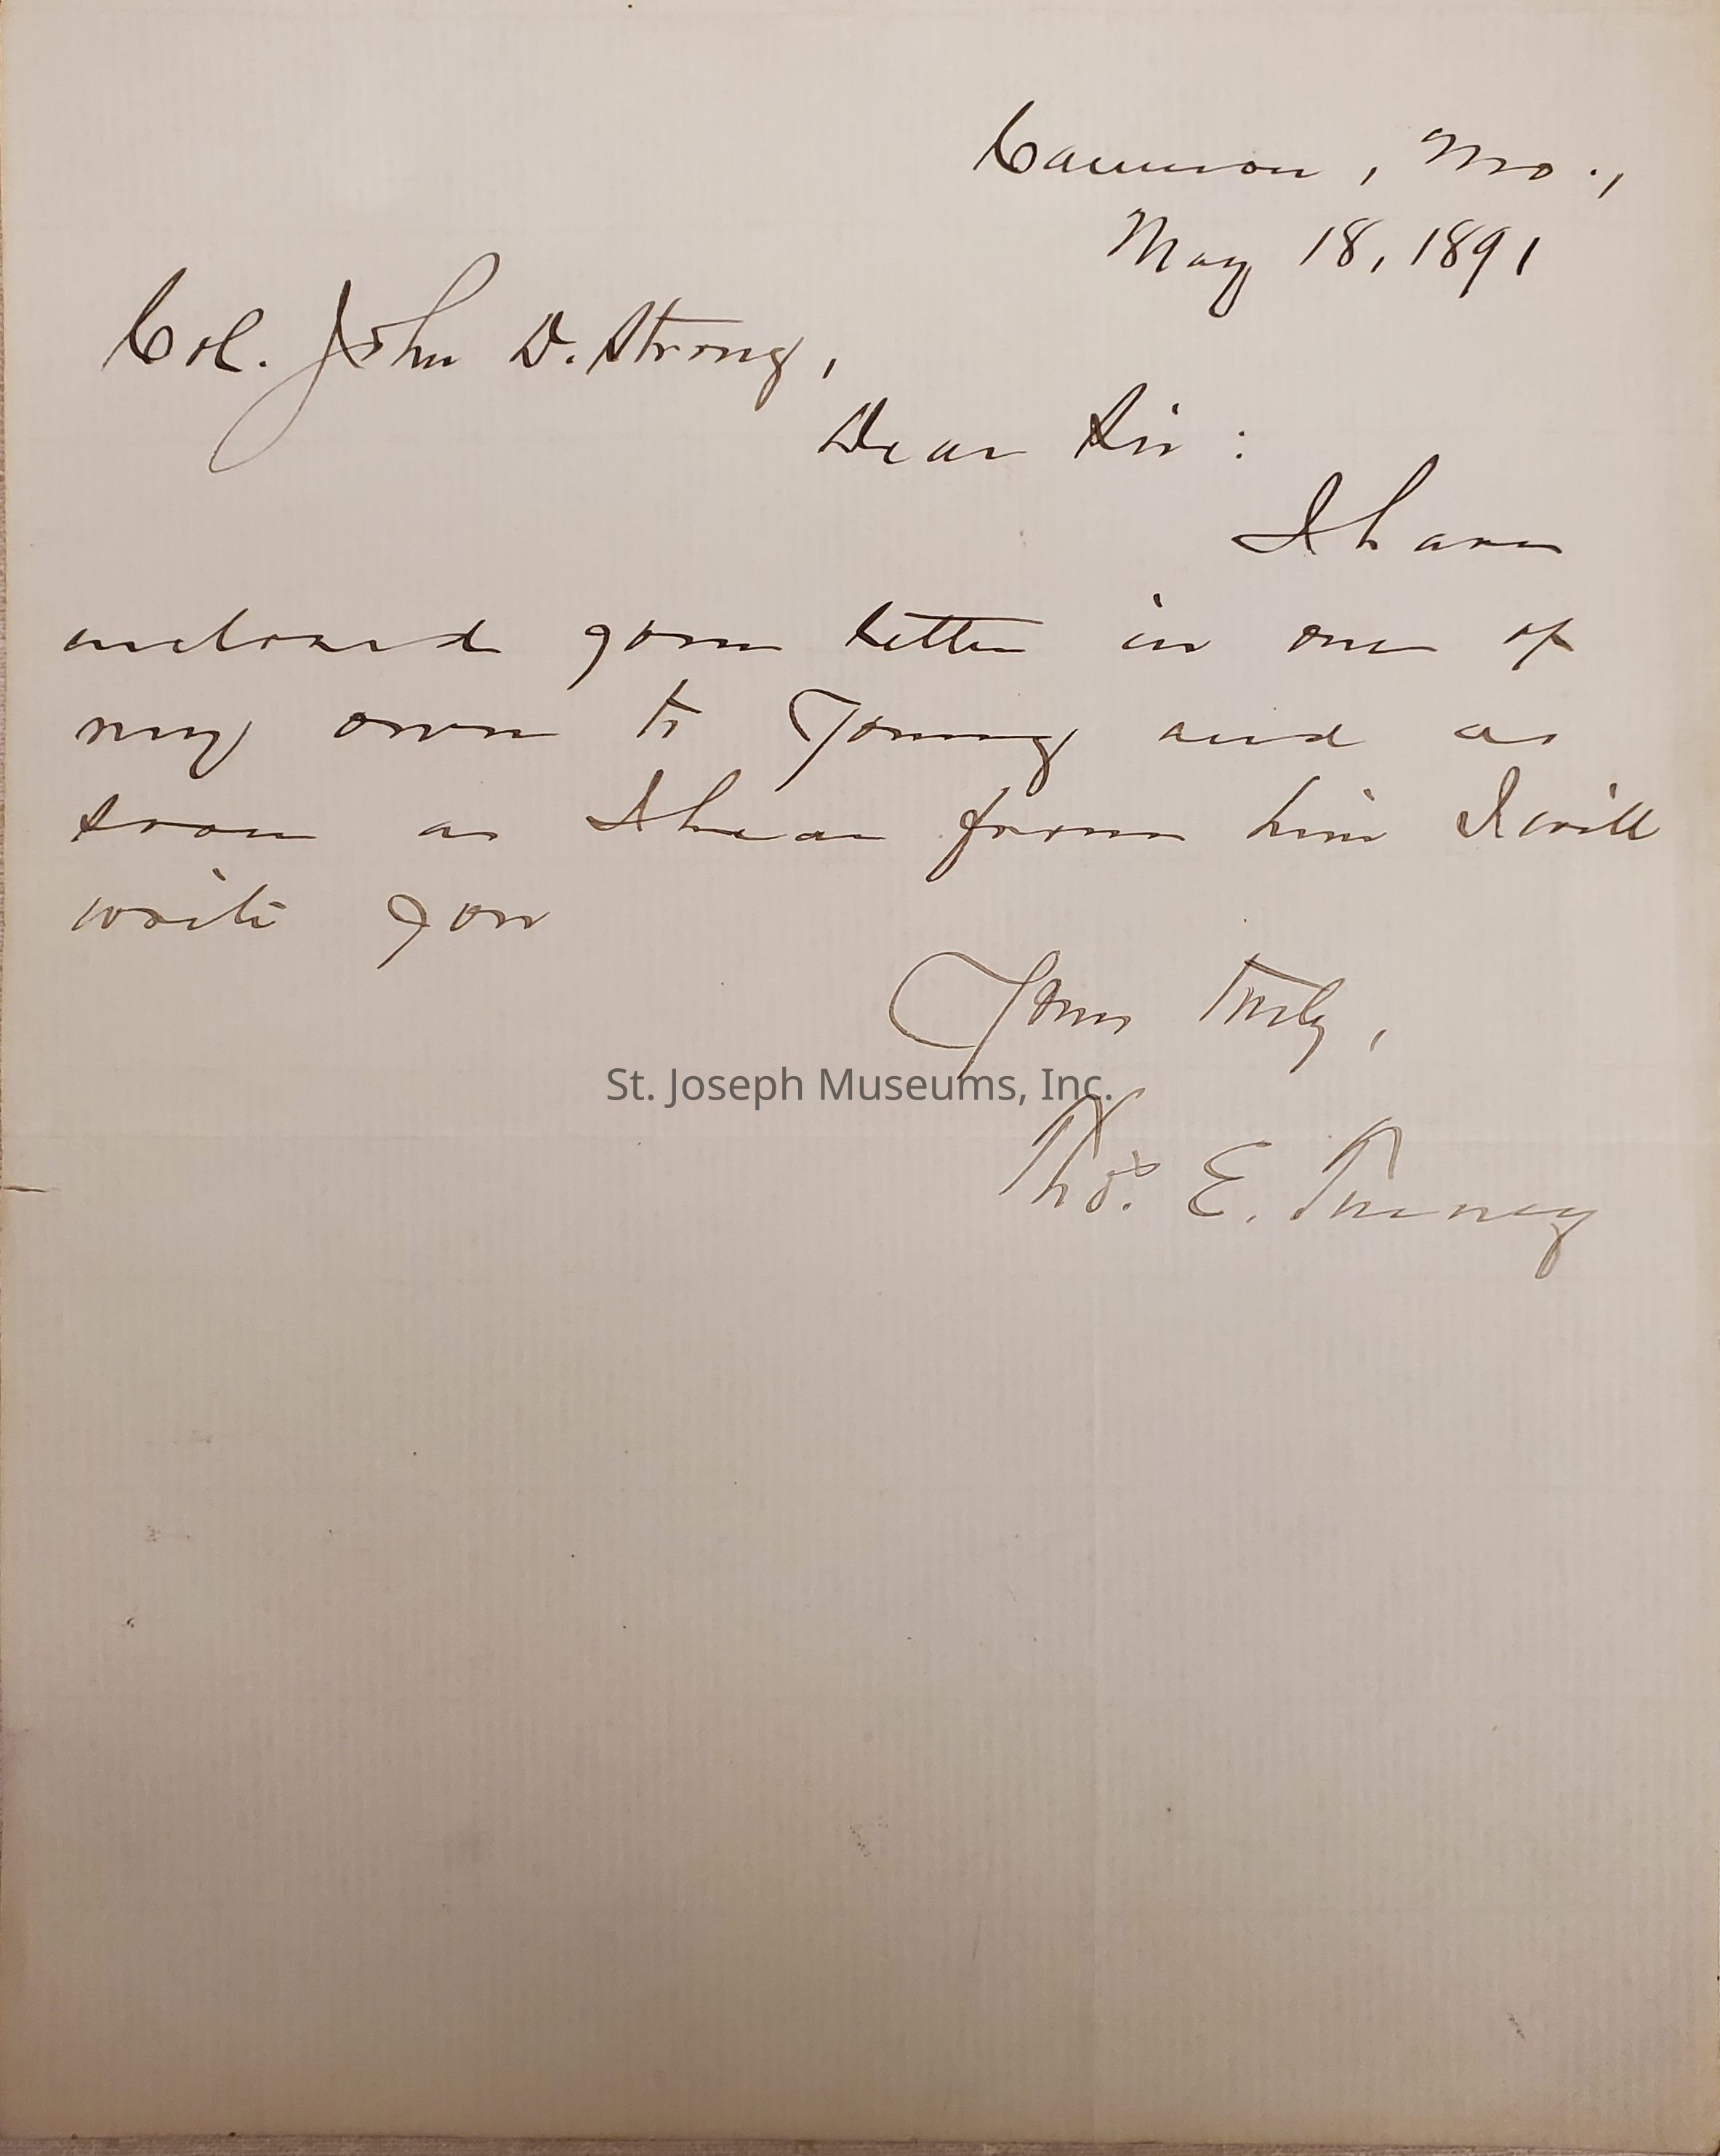 Cameron, Mo.,
May 18, 1891
Col. John D. Strong,
Dear Sir:
I have
enclosed your letter in one of
my own to Young and as
soon as I hear from him I will
write you
Yours truly,
St. Joseph Museums, Inc.
Thos. E. Turney